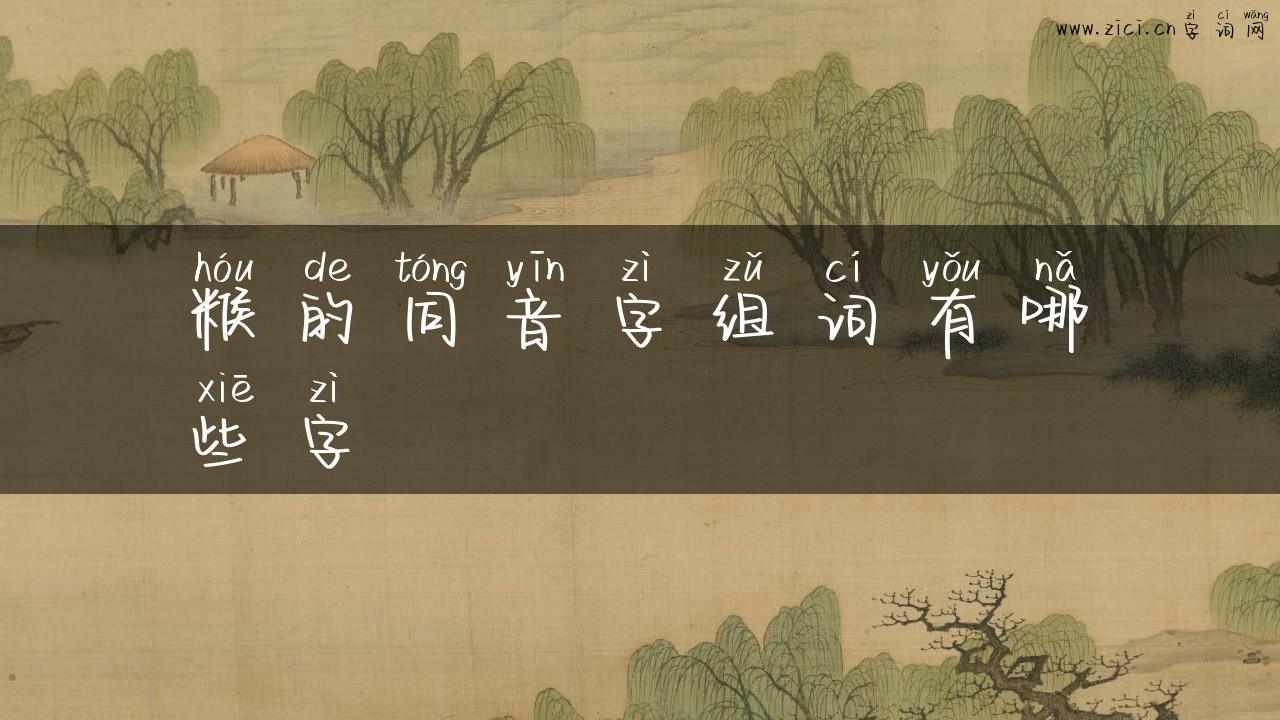 zì cí wǎng
www.zici.cn 字词网
hóu de tóng yīn zì zǔ cí yǒu nǎ
糇的同音字组词有哪
xiē zì
些字